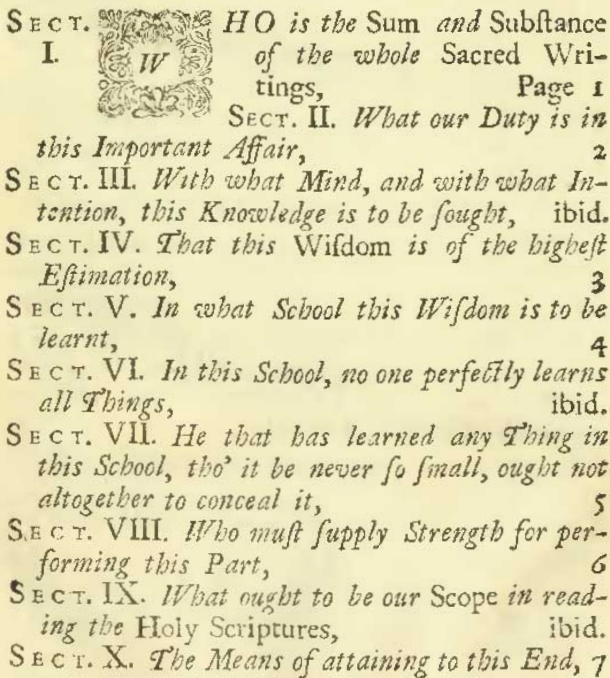 SECT. WHO is the Sum and Subſtance
I. of the whole Sacred Wri-
tings, Page 1
SECT. II. What our Duty is in
this Important Affair, 2
SECT. III. With what Mind, and with what In-
tention, this Knowledge is to be ſought, ibid.
SECT. IV. That this Wiſdom is of the higheſt
Eſtimation, 3
SECT. V. In what School this Wiſdom is to be
learnt, 4
SECT. VI. In this School, no one perfectly learns
all Things, ibid.
SECT. VII. He that has learned any Thing in
this School, tho' it be never ſo ſmall, ought not
altogether to conceal it, 5
SECT. VIII. Who muſt ſupply Strength for per-
forming this Part, 6
SECT. IX. What ought to be our Scope in read-
ing the Holy Scriptures, ibid.
SECT. X. The Means of attaining to this End, 7